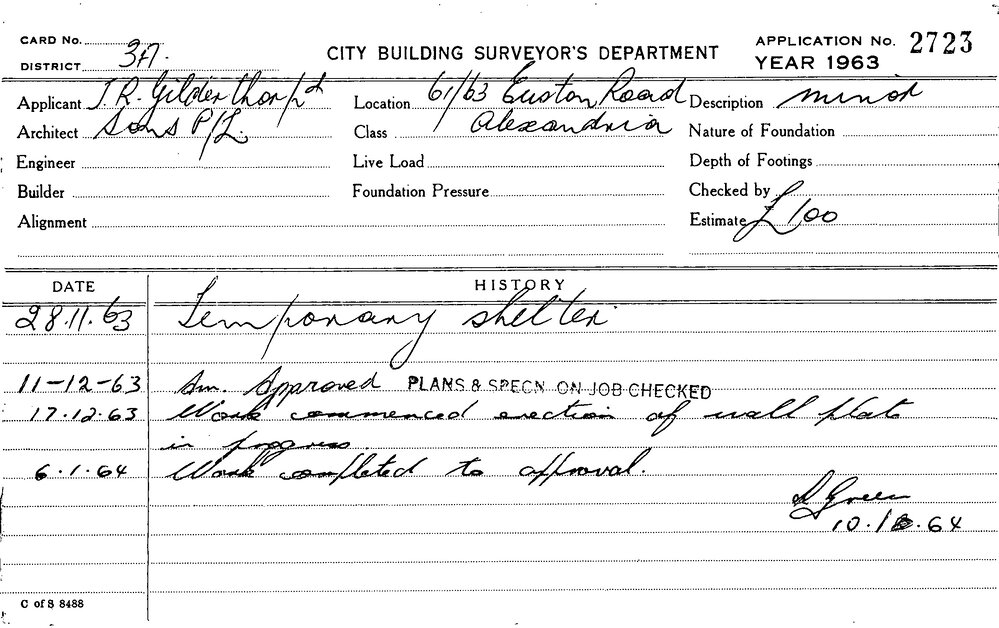 CARD No.
CITY BUILDING SURVEYOR'S DEPARTMENT
APPLICATION No. 2723
DISTRICT 3A.
YEAR 1963
Applicant J. R. Gilderthorp &
Location 61/63 Euston Road
Description minor
Architect Sons P/L.
Class Alexandria
Nature of Foundation
Engineer
Live Load
Depth of Footings
Builder
Foundation Pressure
Checked by
Alignment
Estimate £100
DATE HISTORY
28.11.63 Temporary shelter
11-12-63 Approved PLANS & SPECN ON JOB CHECKED
17.12.63 Work commenced erection of wall plate
in progress.
6.1.64 Work completed to approval.
Green
C of S 8488